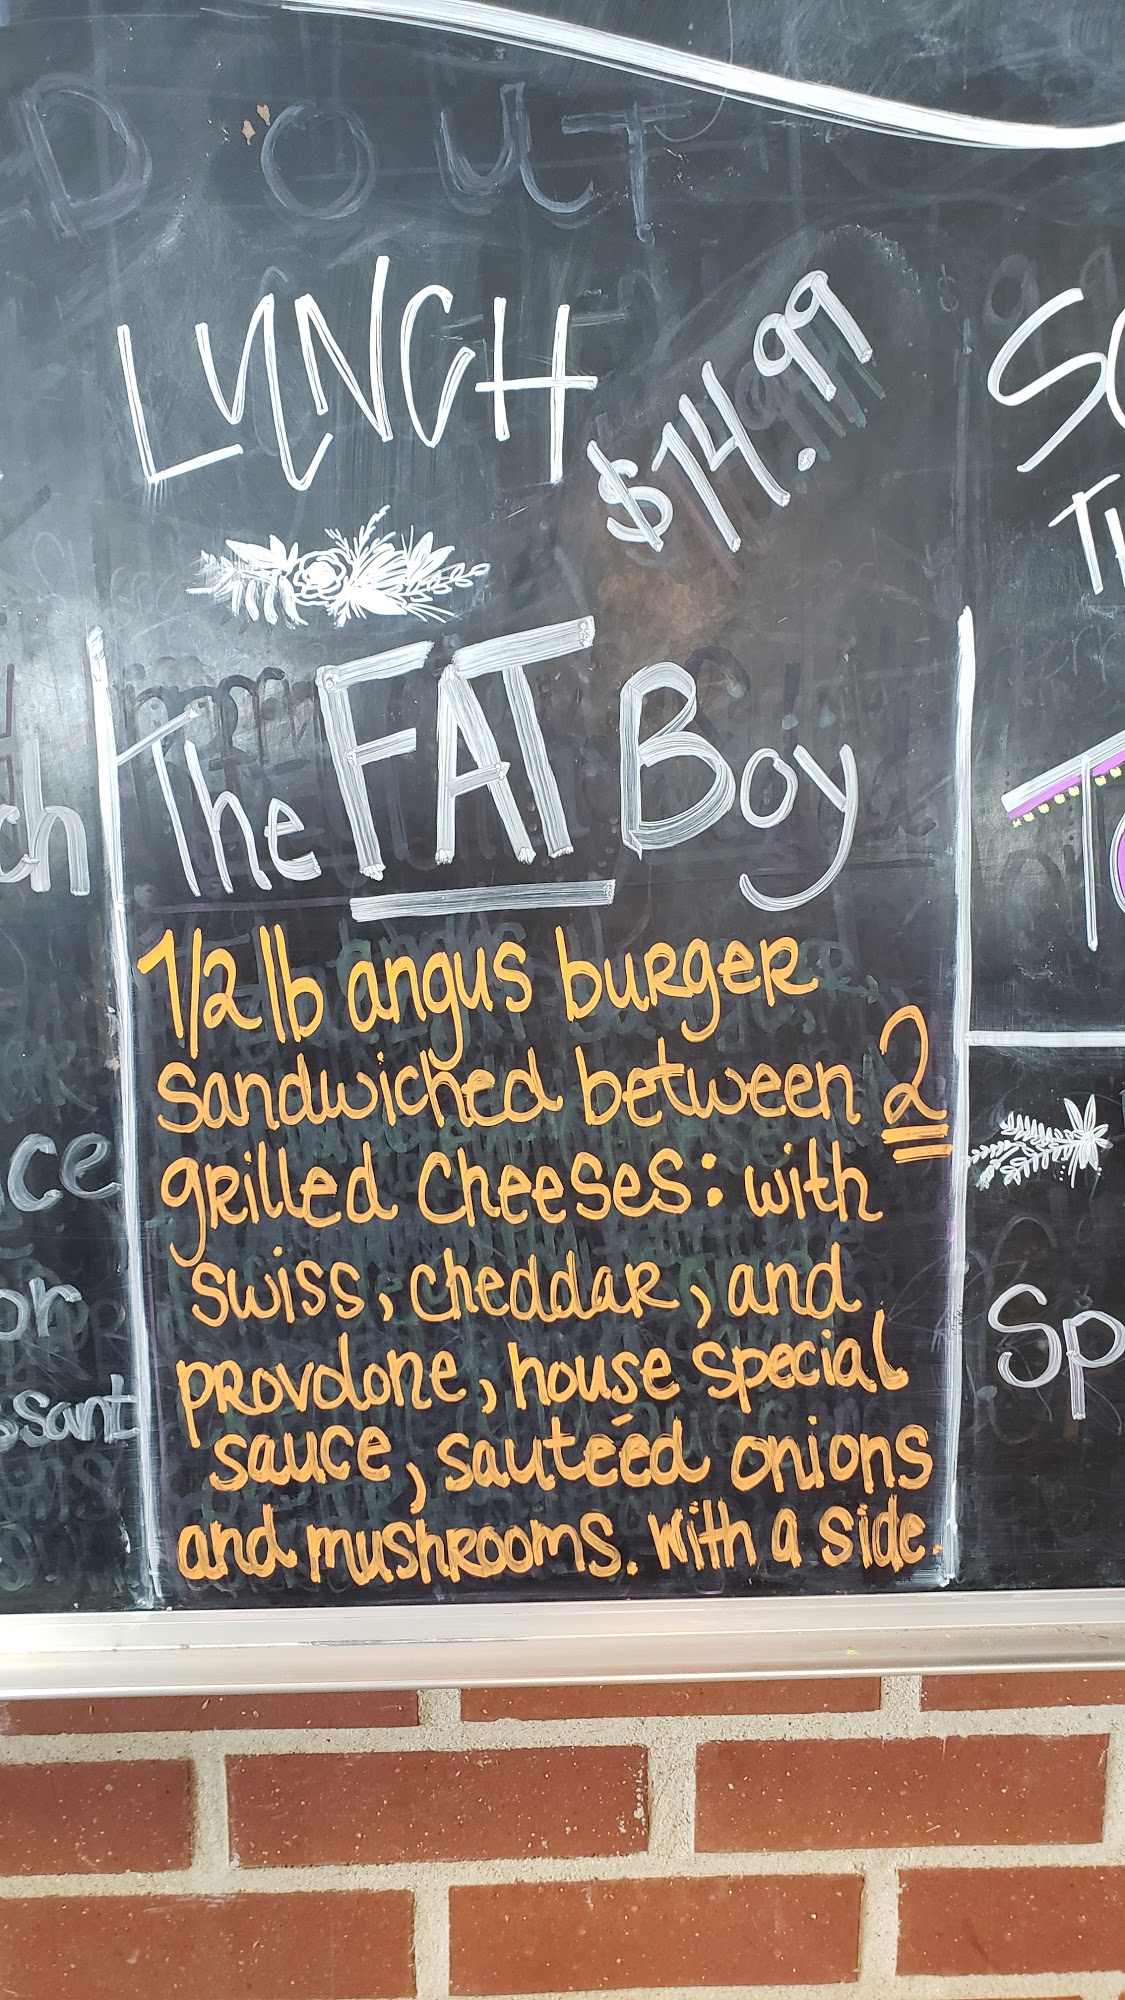 D OUT
LUNCH
$14.99
The FAT Boy
1/2 lb angus burger
sandwiched between 2
grilled cheeses: with
swiss, cheddar, and
provolone, house special
sauce, sautéed onions
and mushrooms. with a side.
ch
ce
on
ssant
Sp